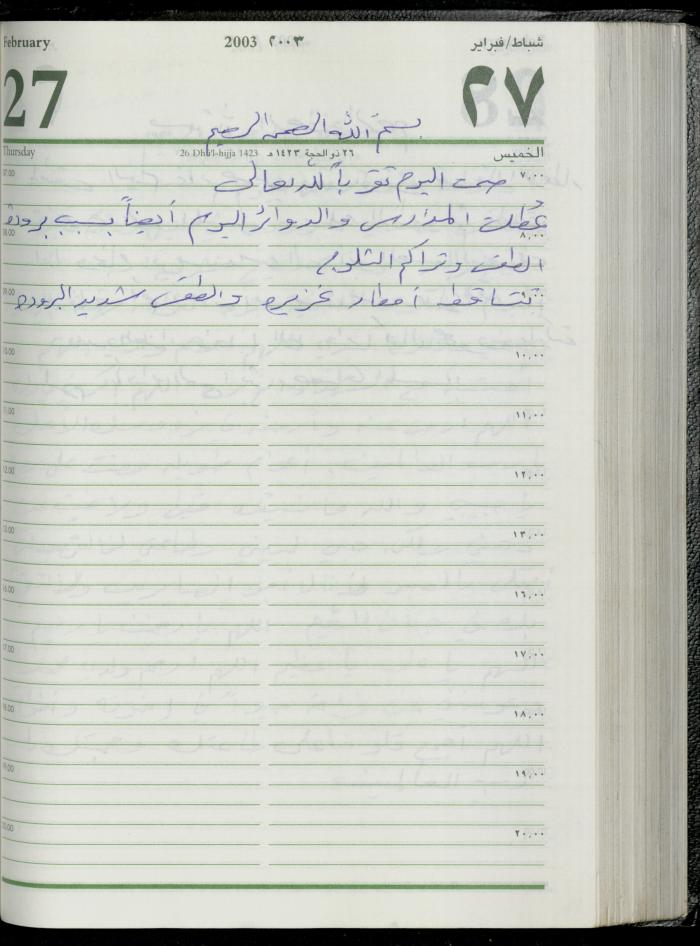 February 2003 ٢٠٠٣ شباط/فبراير
27 ٢٧
بسم الله الرحمن الرحيم
Thursday 26 Dhu'l-hijja 1423 ٢٦ ذو الحجة ١٤٢٣ هـ الخميس
07.00 ٧,٠٠
صمت اليوم تقرباً لله تعالى
عُطلت المدارس والدوائر اليوم أيضاً بسبب برودة
08.00 ٨,٠٠
الطقس وتراكم الثلوج
09.00
تتساقط أمطار غزيره والطقس شديد البروده
10.00 ١٠,٠٠
11.00 ١١,٠٠
12.00 ١٢,٠٠
13.00 ١٣,٠٠
16.00 ١٦,٠٠
17.00 ١٧,٠٠
18.00 ١٨,٠٠
19.00 ١٩,٠٠
20.00 ٢٠,٠٠